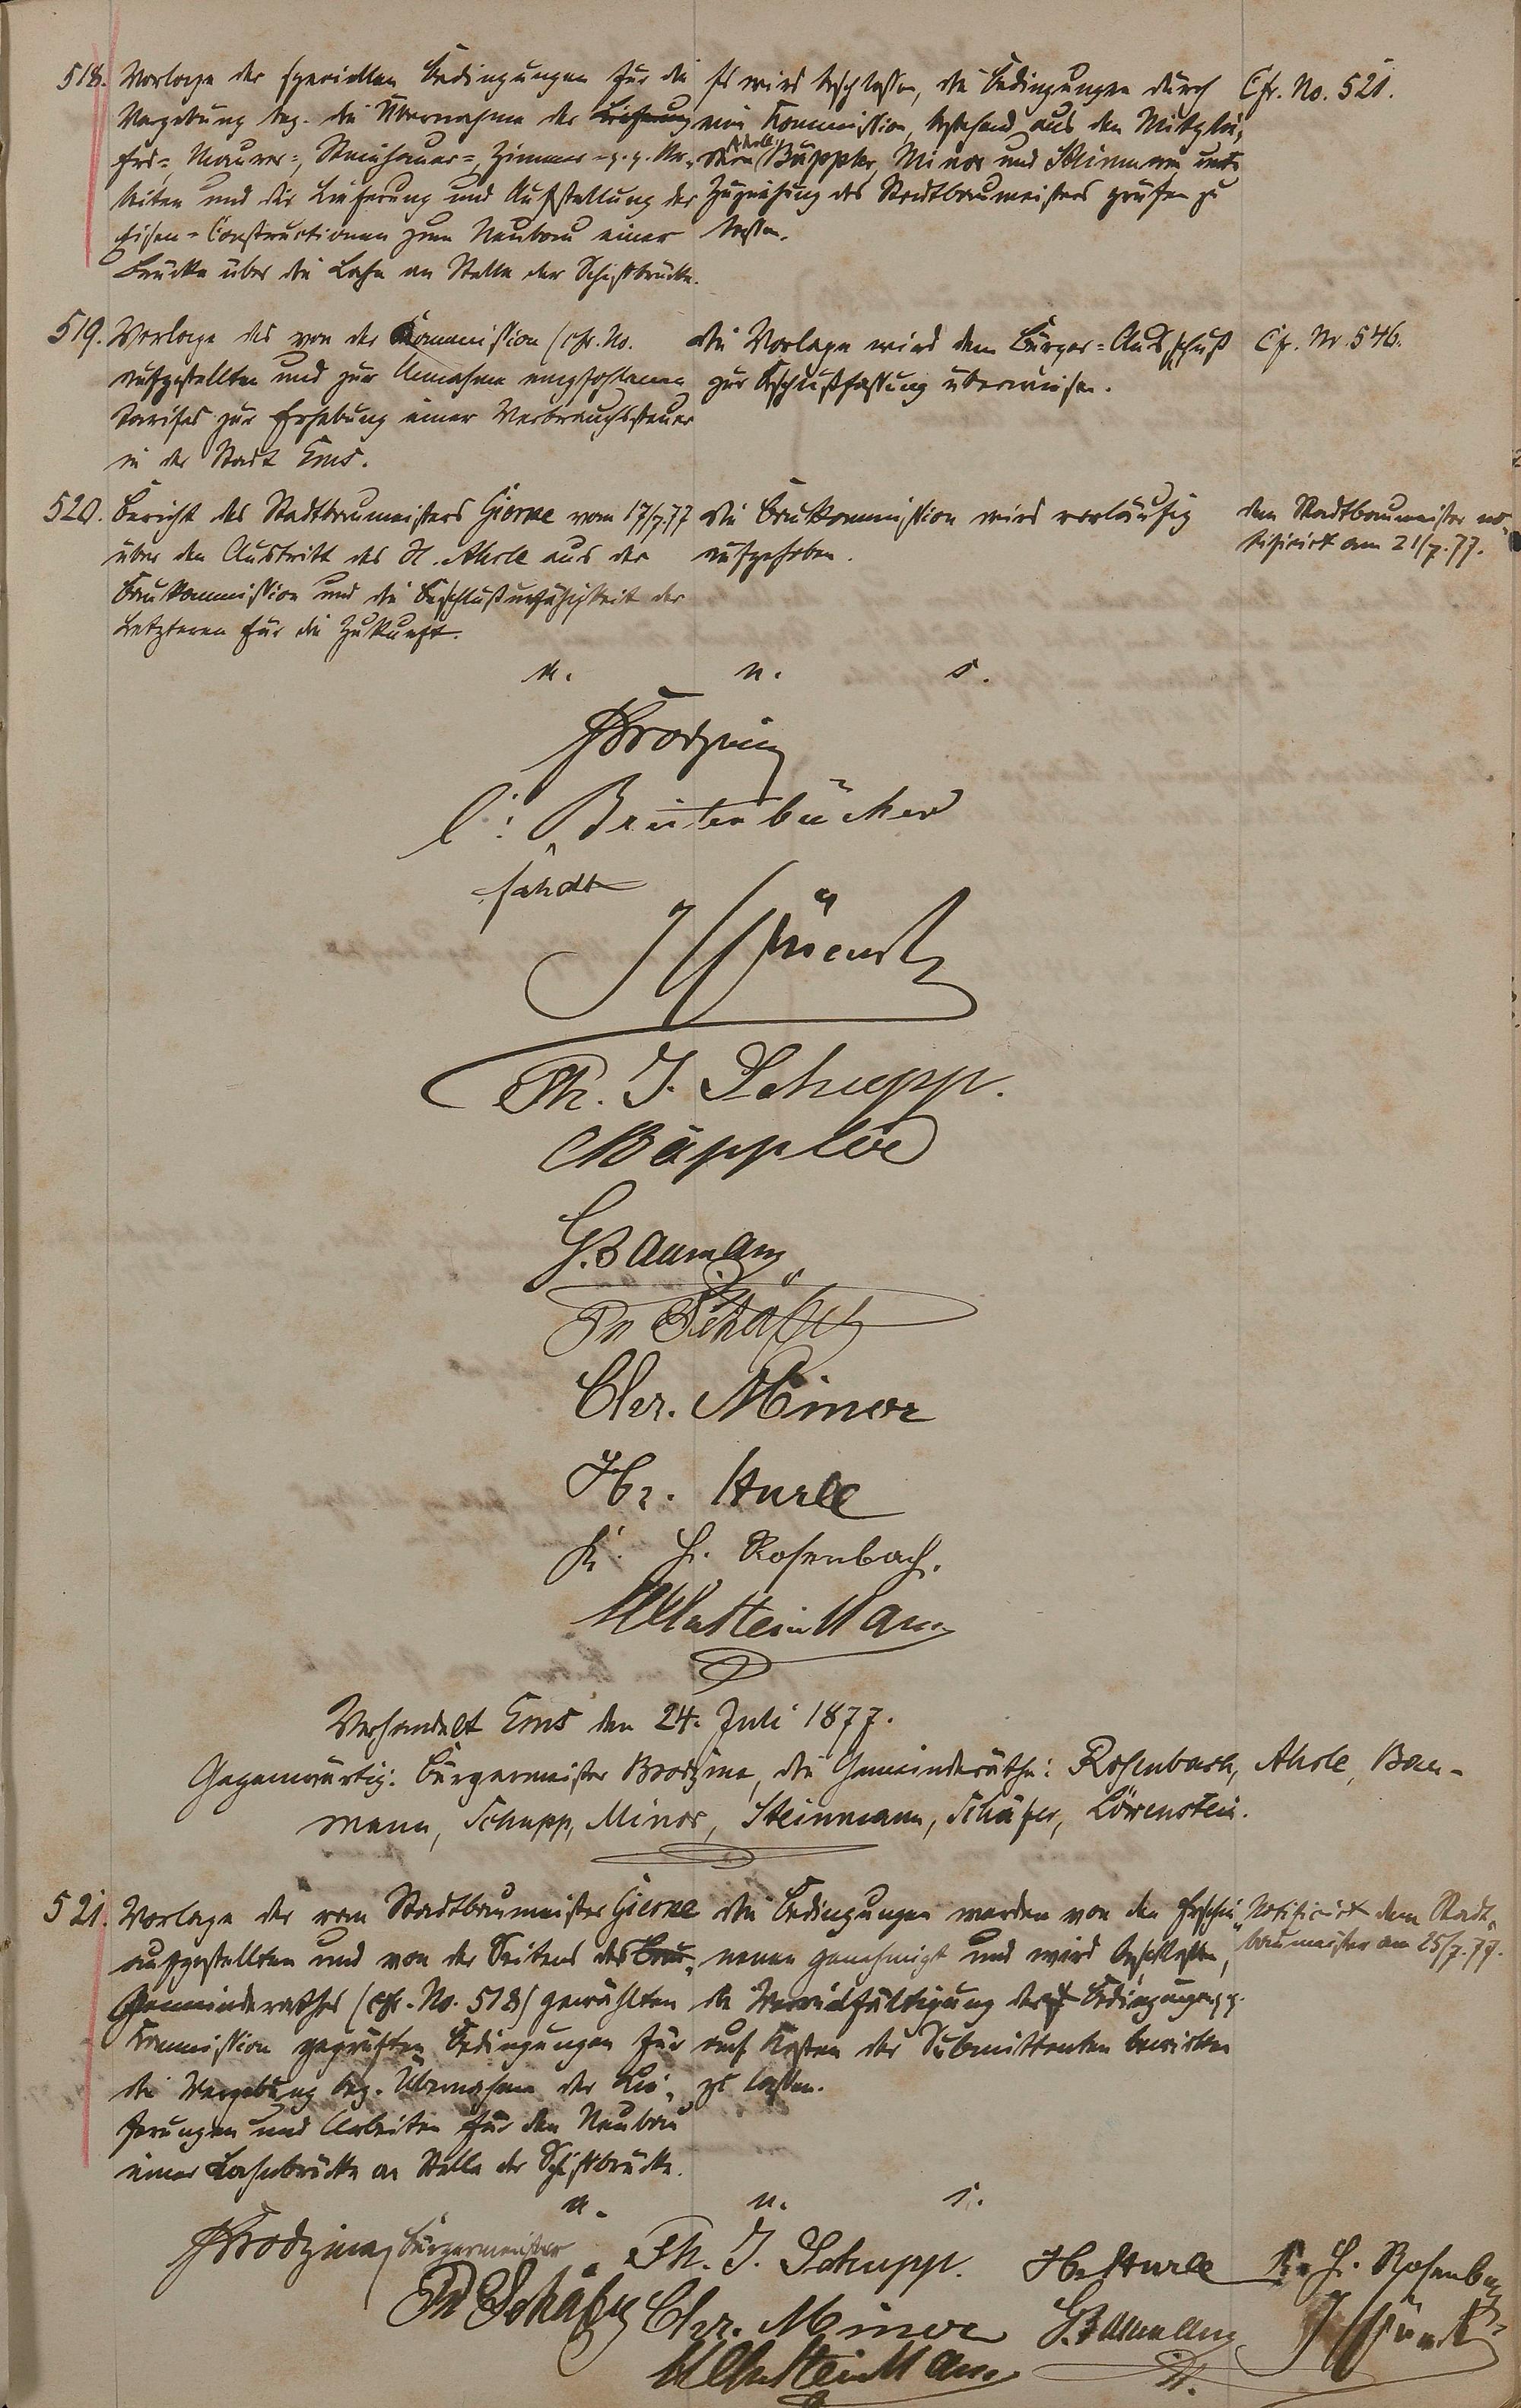 518. Vorlage der speciellen Bedingungen für die
Vergebung bez. die Übernahme der Lieferung
Erd=, Maurer=, Steinhauer=, Zimmer= p. p. Ar-
beiten und die Lieferung und Aufstellung der
Eisen=Constructionen zum Neubau einer
Brücke über die Lahn an Stelle der Schiffbrücke.
Es wird beschlossen, die Bedingungen durch
eine Kommission, bestehend aus den Mitglie-
dern Ahrle, Bäppler, Minor und Steinmann unter
Zuziehung des Stadtbaumeisters prüfen zu
lassen.
Cfr. No. 521.
519. Vorlage des von der Kommission (cfr. No.
aufgestellten und zur Annahme empfohlenen
Tarifes zur Erhebung einer Verbrauchssteuer
in der Stadt Ems.
Die Vorlage wird dem Bürger=Ausschuß
zur Beschlußfassung überwiesen.
Cfr. Nr. 546.
520. Bericht des Stadtbaumeisters Gierne vom 17/7.77
über den Austritt des H. Ahrle aus der
Baukommission und die Beschlußunfähigkeit der
Letzteren für die Zukunft.
Die Baukommission wird vorläufig
aufgehoben.
dem Stadtbaumeister no-
tificirt am 21/7.77.
u. n. s.
Brodzina
Breitenbücher
Th. J. Schupp.
Bäppler
G. Baumann
Ph Schäfer
Chr. Minor
Hr. Ahrle
K. H. Rosenbach.
Wilh Steinmann
Verhandelt Ems den 24. Juli 1877.
Gegenwärtig: Bürgermeister Brodzina, die Gemeinderäthe: Rosenbach, Ahrle, Bau-
mann, Schupp, Minor, Steinmann, Schäfer, Löwenstein.
521. Vorlage der vom Stadtbaumeister Gierne
aufgestellten und von der Seitens des Bau-
Gemeinderathes (cfr. No. 518) gewählten
Kommission geprüften Bedingungen für
die Vergebung bez. Übernahme der Lie-
ferungen und Arbeiten für den Neubau
einer Lahnbrücke an Stelle der Schiffbrücke.
Die Bedingungen werden von den Erschie-
nenen genehmigt und wird beschlossen,
die Vervielfältigung der Bedingungen p.
auf Kosten der Submittenten bewirken
zu lassen.
Notificirt dem Stadt-
baumeister am 25/7.77.
u. n. s.
Brodzina Bürgermeister Th. J. Schupp. Hr. Ahrle K. H. Rosenbach
Ph Schäfer Chr. Minor G. Baumann
Wilh Steinmann